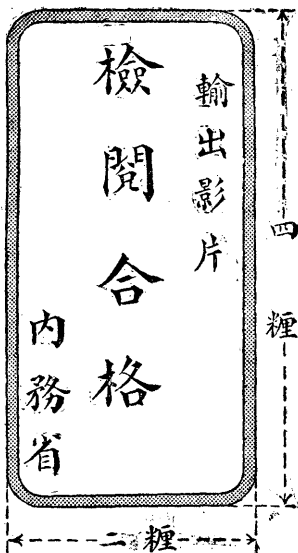 輸出影片
檢閱合格
內務省
四糎
二糎